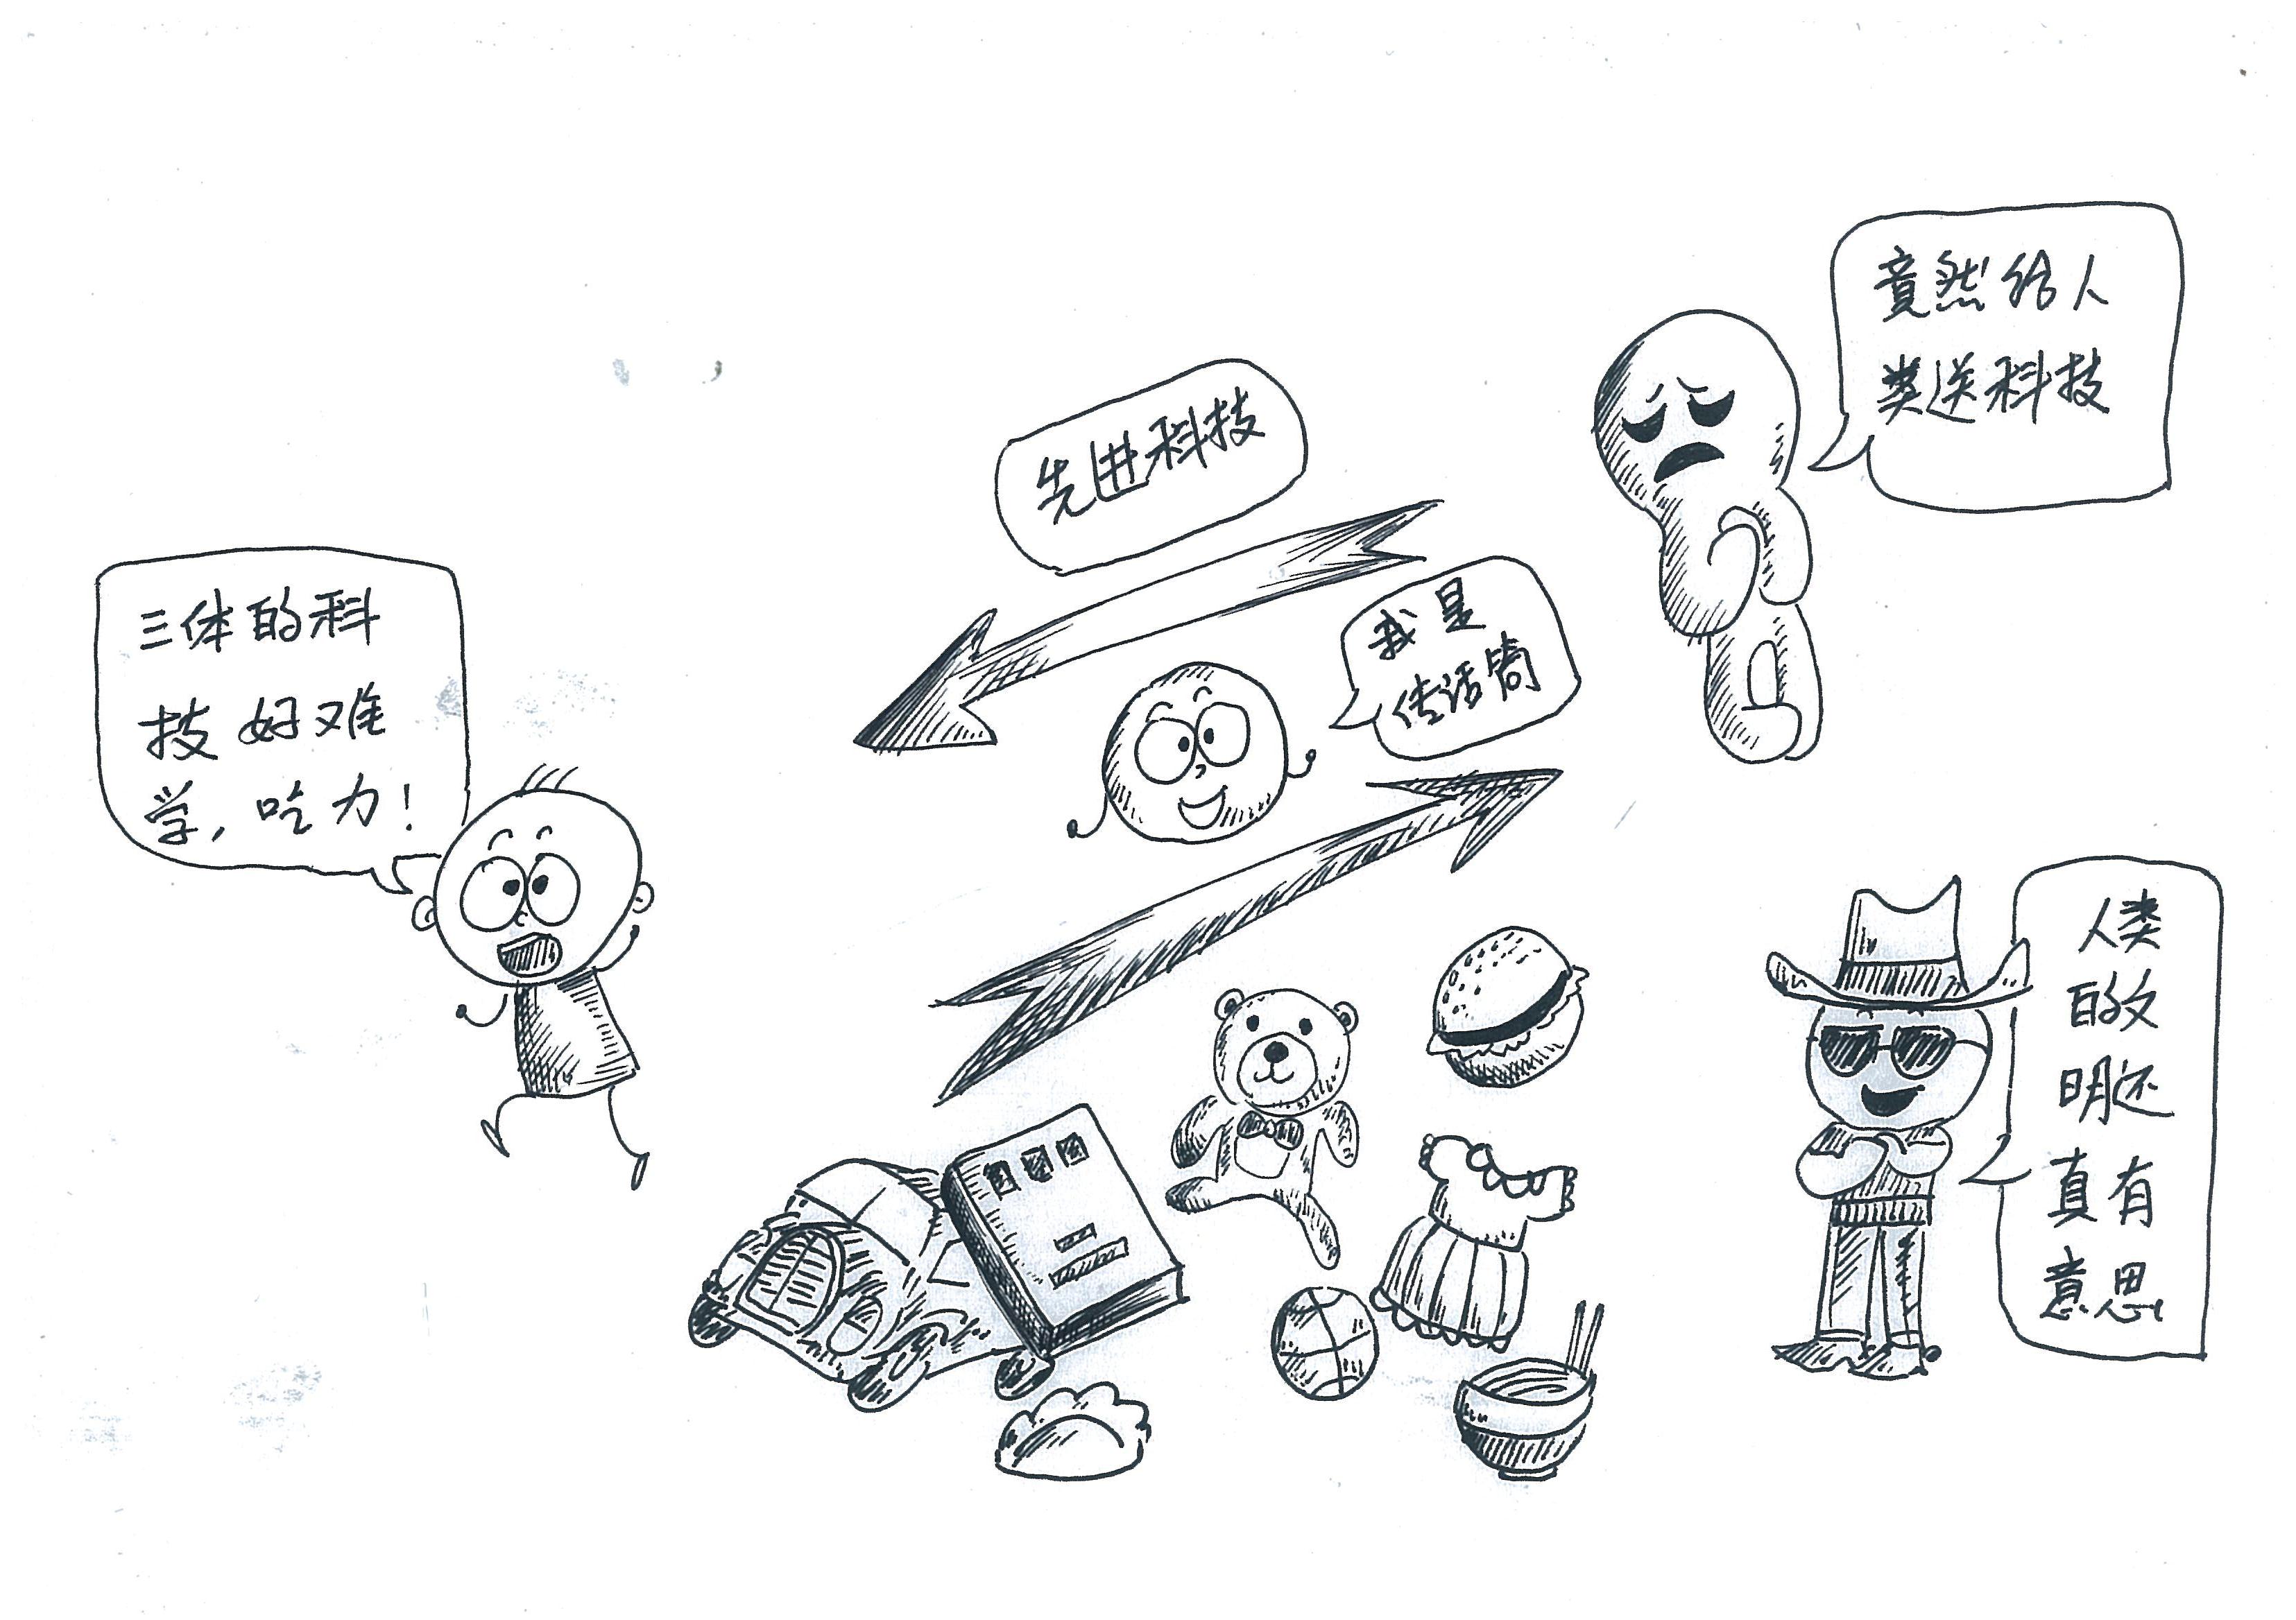 竟然给人
类送科技
先进科技
我是
传话筒
三体的科
技好难
学，吃力！
人类
的文
明还
真有
意思